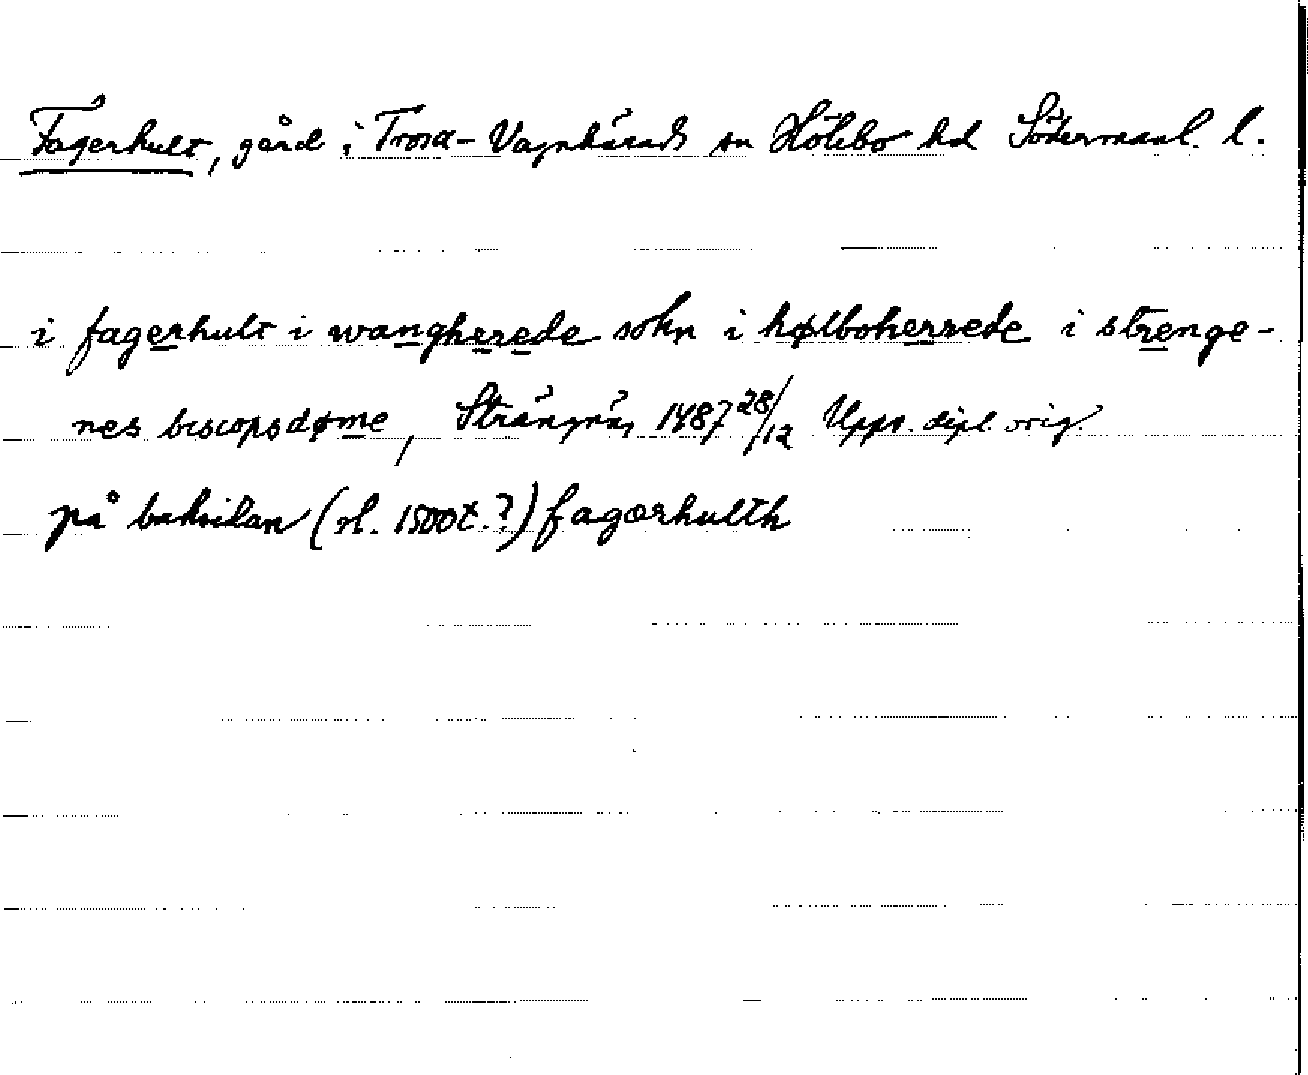 Fagerhult, gård i Trosa-Vagnhärads sn Hölebo hd Södermanl. l.
i fagerhult i wangherede sokn i hølboherrede i strenge-
nes biscopsdøme, Strängnäs 1487 28/12 Upps. dipl. orig.
på baksidan (sl. 1500t.?) fagærhulth